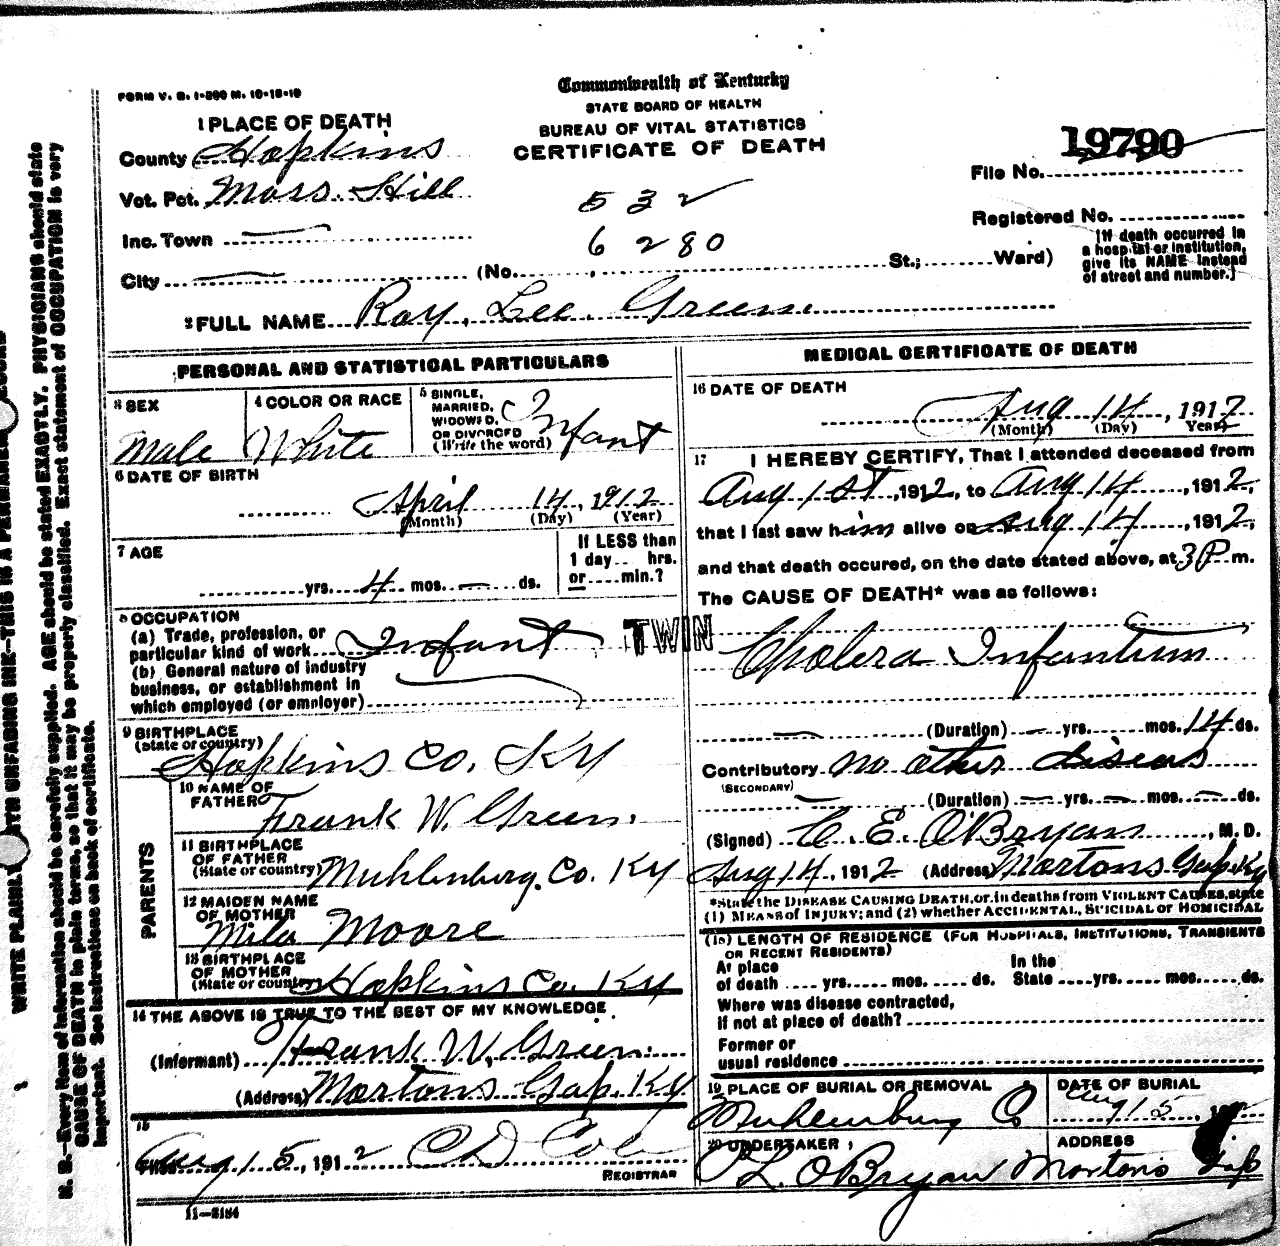 FORM V. S. 1-200 M. 10-18-10
Commonwealth of Kentucky
STATE BOARD OF HEALTH
BUREAU OF VITAL STATISTICS
CERTIFICATE OF DEATH
1 PLACE OF DEATH
County Hopkins
Vot. Pct. Moss Hill
Inc. Town
City (No. St.; Ward)
532
6280
19790
File No.
Registered No.
[If death occurred in
a hospital or institution,
give its NAME instead
of street and number.]
2 FULL NAME Ray Lee Green
PERSONAL AND STATISTICAL PARTICULARS
3 SEX
Male
4 COLOR OR RACE
White
5 SINGLE,
MARRIED,
WIDOWED,
OR DIVORCED
(Write the word)
Infant
6 DATE OF BIRTH
April 14, 1912
(Month) (Day) (Year)
7 AGE
yrs. 4 mos. — ds.
If LESS than
1 day.... hrs.
or.....min.?
8 OCCUPATION
(a) Trade, profession, or
particular kind of work Infant
(b) General nature of industry
business, or establishment in
which employed (or employer)
TWIN
9 BIRTHPLACE
(State or country)
Hopkins Co. Ky
PARENTS
10 NAME OF
FATHER
Frank W. Green.
11 BIRTHPLACE
OF FATHER
(State or country) Muhlenburg. Co. Ky
12 MAIDEN NAME
OF MOTHER
Mila Moore
13 BIRTHPLACE
OF MOTHER
(State or country) Hopkins Co. Ky
14 THE ABOVE IS TRUE TO THE BEST OF MY KNOWLEDGE
(Informant) Frank W. Green
(Address) Mortons Gap. Ky
15
Filed Aug 15, 1912
REGISTRAR
11—5184
MEDICAL CERTIFICATE OF DEATH
16 DATE OF DEATH
Aug 14, 1912
(Month) (Day) Year
17 I HEREBY CERTIFY, That I attended deceased from
Aug 1st, 1912, to Aug 14, 1912,
that I last saw him alive on Aug 14, 1912,
and that death occured, on the date stated above, at 3 P m.
The CAUSE OF DEATH* was as follows:
Cholera Infantum
(Duration) — yrs. mos. 14 ds.
Contributory no other diseas
(SECONDARY)
(Duration) — yrs. — mos. — ds.
(Signed) C. E. O'Bryan, M. D.
Aug 14, 1912 (Address) Mortons Gap Ky
*State the DISEASE CAUSING DEATH, or, in deaths from VIOLENT CAUSES, state
(1) MEANS of INJURY; and (2) whether ACCIDENTAL, SUICIDAL or HOMICIDAL
(18) LENGTH OF RESIDENCE (FOR HOSPITALS, INSTITUTIONS, TRANSIENTS
OR RECENT RESIDENTS)
At place In the
of death .... yrs.....mos.... ds. State ....yrs.....mos.....ds.
Where was disease contracted,
If not at place of death?
Former or
usual residence
19 PLACE OF BURIAL OR REMOVAL
Muhlenburg Co
DATE OF BURIAL
Aug 15
20 UNDERTAKER
O'Bryan
ADDRESS
Mortons Gap
WRITE PLAINLY WITH UNFADING INK—THIS IS A PERMANENT RECORD
N. B.—Every item of information should be carefully supplied. AGE should be stated EXACTLY. PHYSICIANS should state
CAUSE OF DEATH in plain terms, so that it may be properly classified. Exact statement of OCCUPATION is very
important. See instructions on back of certificate.